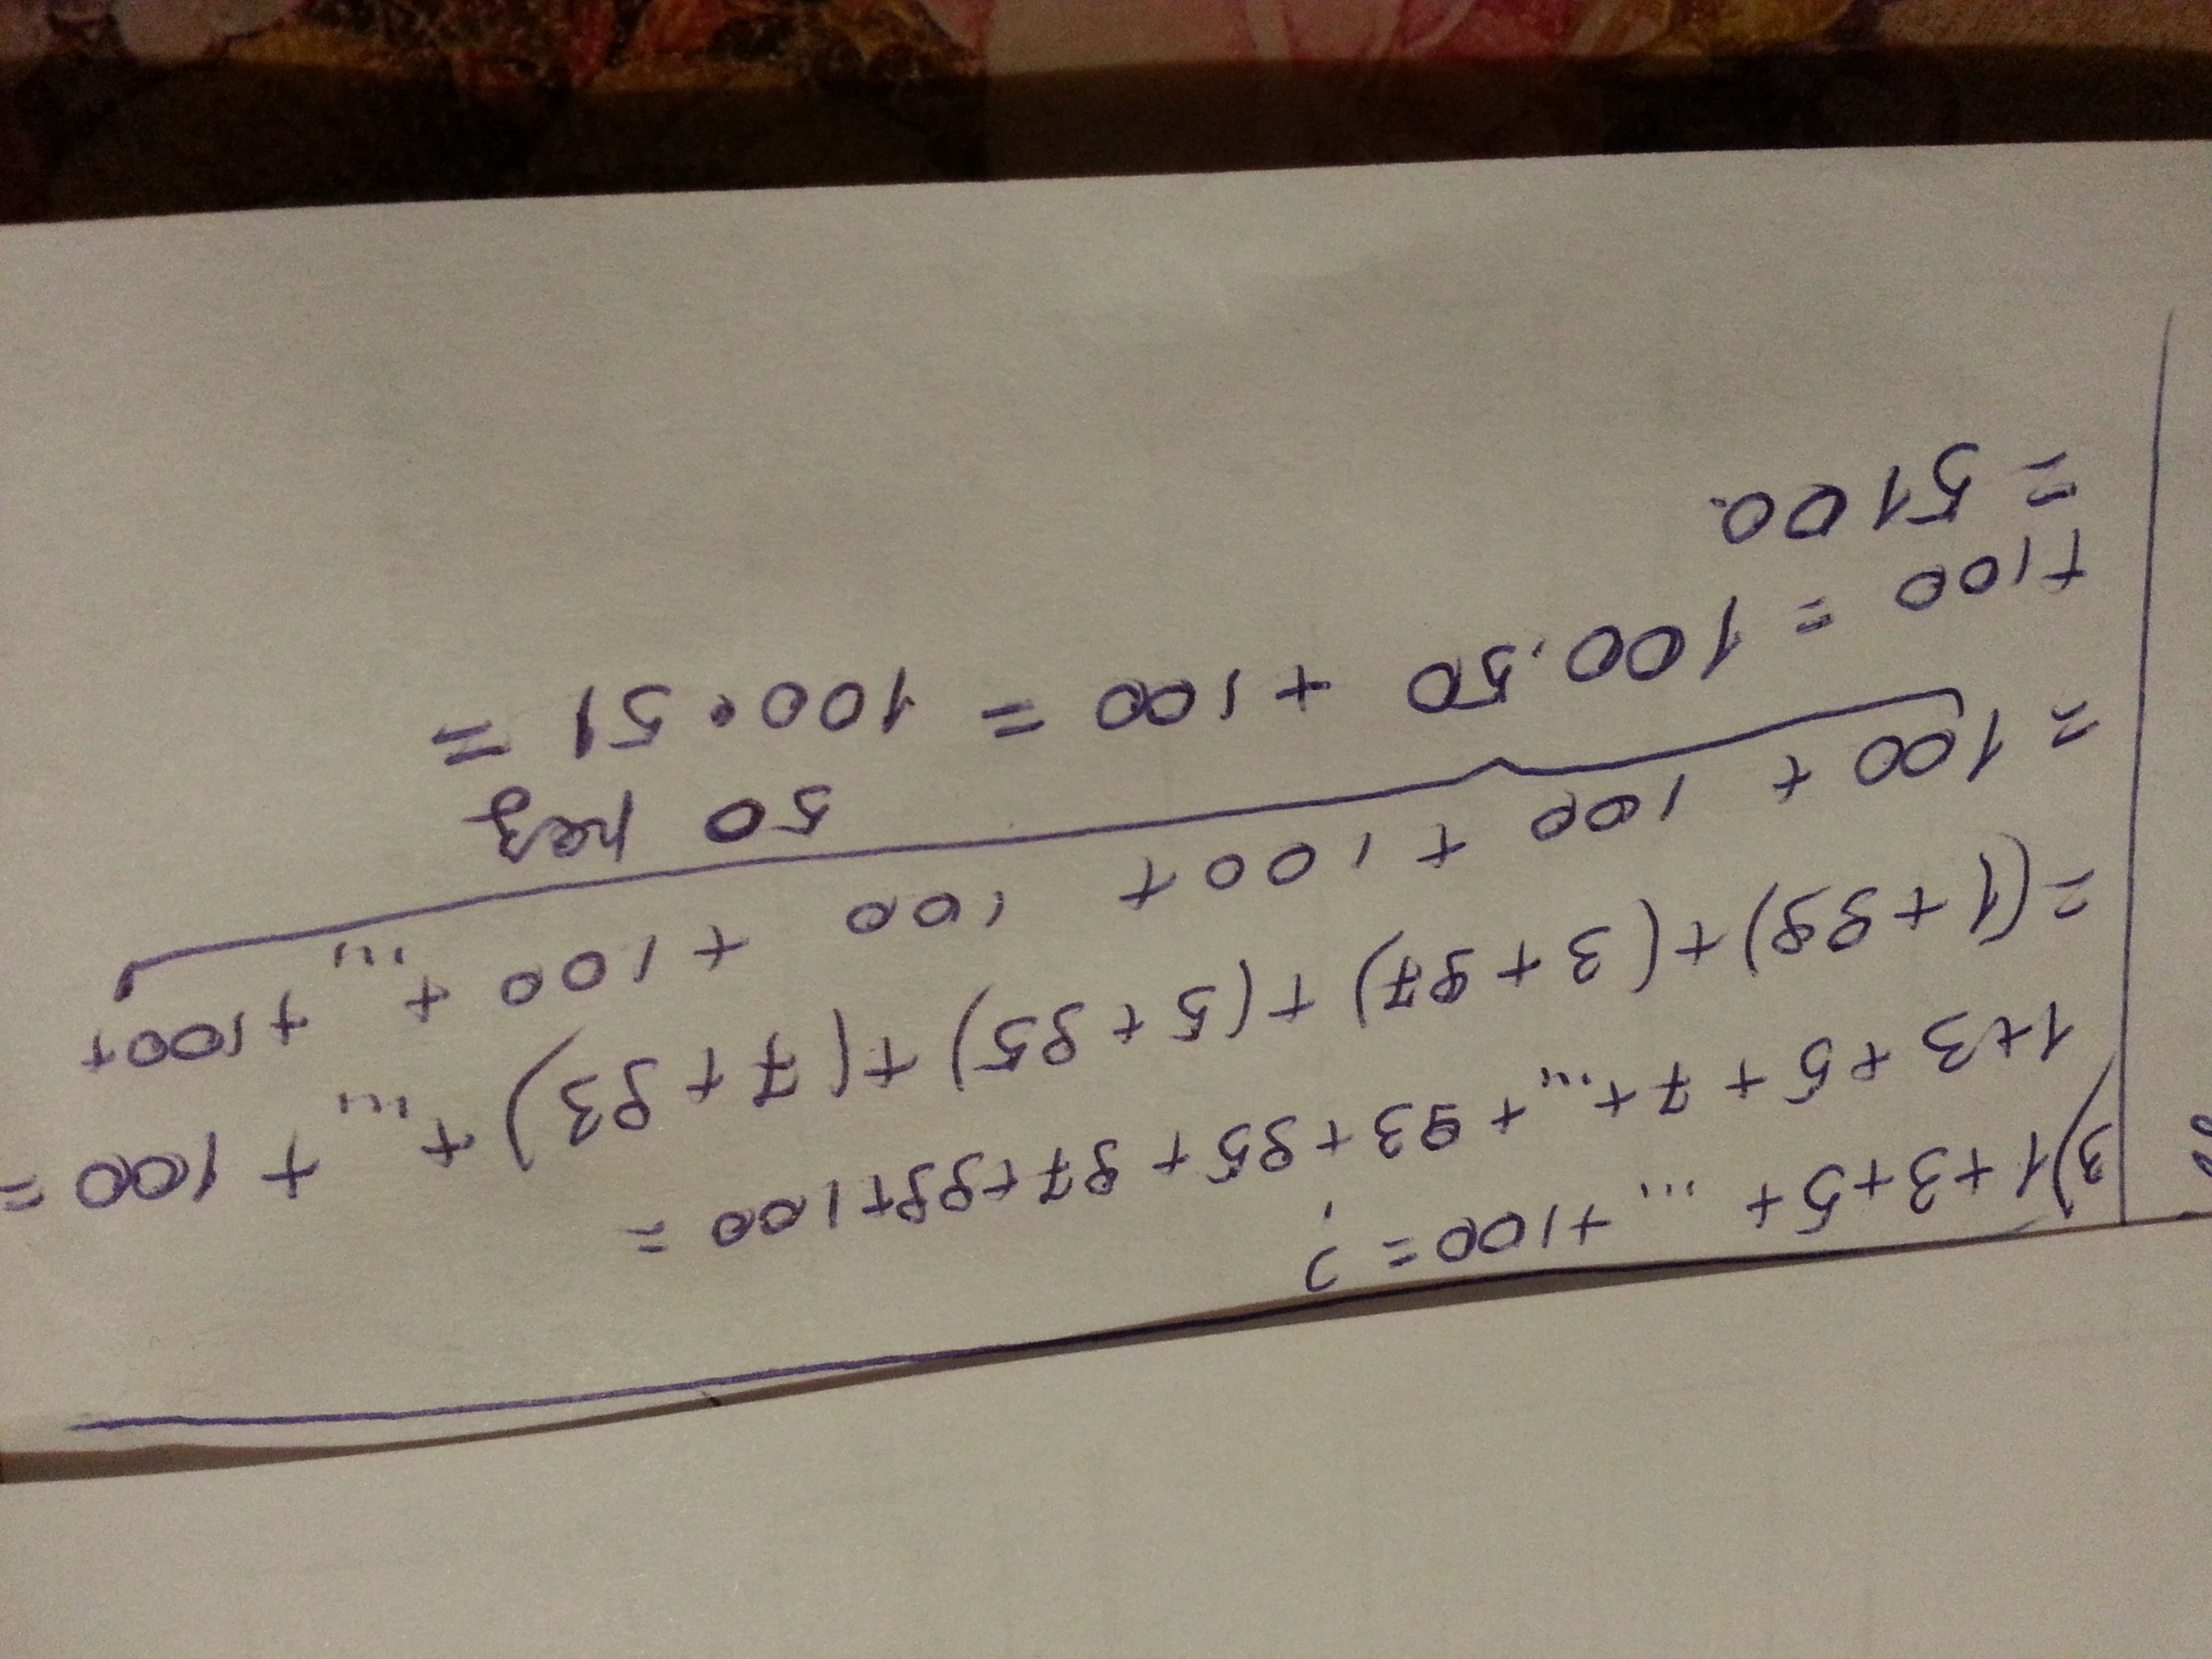 3) 1+3+5+ ... +100 = ?
1+3+5+7+...+93+95+97+99+100 =
=(1+99)+(3+97)+(5+95)+(7+93)+...+100=
= 100 + 100 + 100 + 100 + 100 + ... +100+
50 раз
+100 = 100.50 +100 = 100 • 51 =
= 5100.